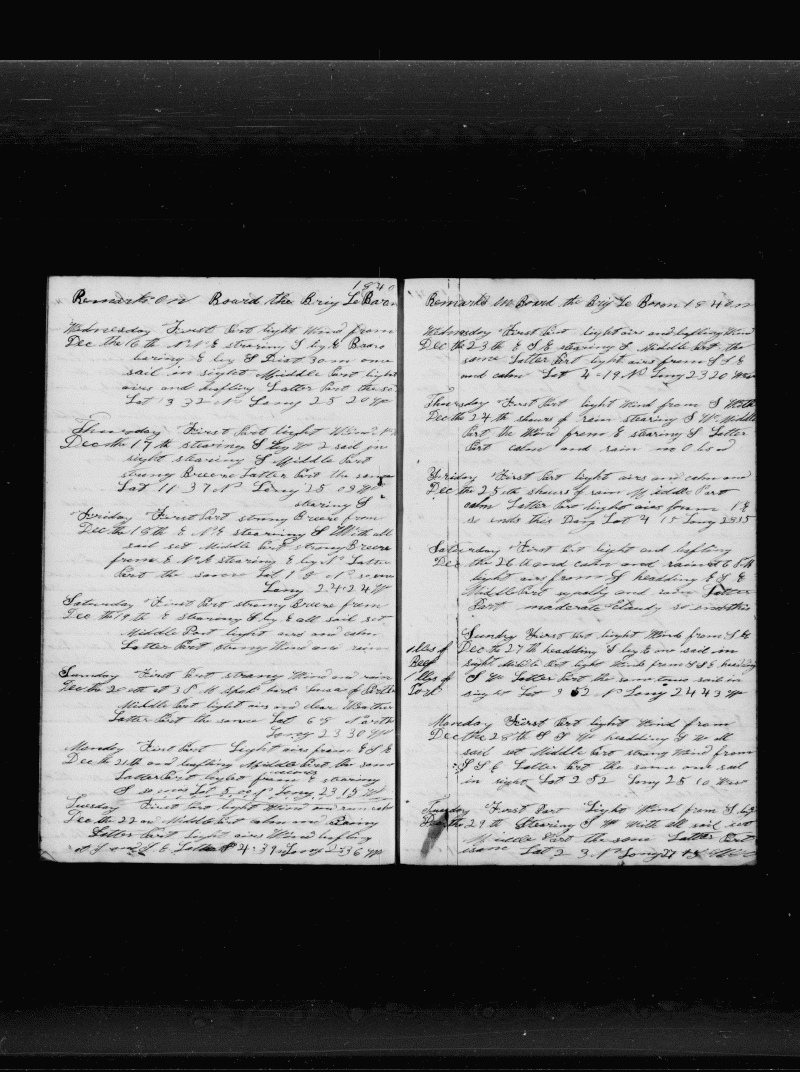 1840
Remarks on Board the Brig Le Baron
Wednesday First Part light Wind from
Dec the 16 th N E stearing S by E Boaro
baring E by S Dist 30 m one
sail in sight Middle Part light
airs and bafling Latter Part the
Lat 13 32 N Long 25 20 W
Thursday First Part light Wind
Dec the 17 th stearing S by W 2 sail in
sight stearing S Middle Part
strong Breeze Latter Part the same
Lat 11 37 N Long 25 09 W
stearing S
Friday First Part strong Breeze from
Dec the 18 th E N E stearing S With all
sail set Middle Part strong Breeze
from E N E stearing E by N Latter
Part the same Lat
Long 24 24 W
Saturday First Part strong Breeze from
Dec the 19 th E stearing S by E all sail set
Middle Part light airs and calm
Latter Part strong Wind and rain
Sunday First Part strong Wind and rain
Dec the 20 th at 3 P M Spok bark
Middle Part light airs and clear Weather
Latter Part the same Lat 6 North
Long 23 30 W
Monday First Part Light airs from E S E
Dec the 21 th and baffling Middle Part the same
Latter Part light from stearing
S Lat Long 23 15 W
Tuesday First Part light Wind and rain
Dec the 22 n Middle Part calm and Rainy
Latter Part Light airs Wind bafling
at S and S E Lat 4:39 Long 36 W
Remarks On Board the Brig Le Baron 1840
Wednesday First Part light airs and bafling Wind
Dec the 23 th E S E stearing S Middle Part the
same Latter Part light airs from S S E
and calm Lat 4=19 N Long 23 20 West
Thursday First Part light Wind from S With
Dec the 24 th shours of rain stearing S W Middle
Part the Wind from E stearing S Latter
Part calm and rain no Obsd
Friday First Part light airs and calm and
Dec the 25 th shours of rain Middle Part
calm Latter Part light airs from
so ends this Day Lat 4 15 Long
Saturday First Part light and bafling
Dec the 26 th and calm and rain at 6 P M
light airs from S headding E S E
Middle Part squaly and rain Latter
Part moderate steady so ends this
Sunday First Part light Winds from S E
1 bbs of Dec the 27 th headding S by E one sail in
Beef sight Middle Part light Winds from S S E heading
1 bbs of S W Latter Part the same two sail in
Pork sight Lat 3 52 N Long 24 43 W
Monday First Part light Wind from
Dec the 28 th S S W headding S W all
sail set Middle Part strong Wind from
S S E Latter Part the same one sail
in sight Lat 2 52 Long 25 10 West
Tuesday First Part Light Wind from S by
Dec the 29 th Stearing S W With all sail set
Middle Part the same Latter Part
same Lat 2 3 N Long